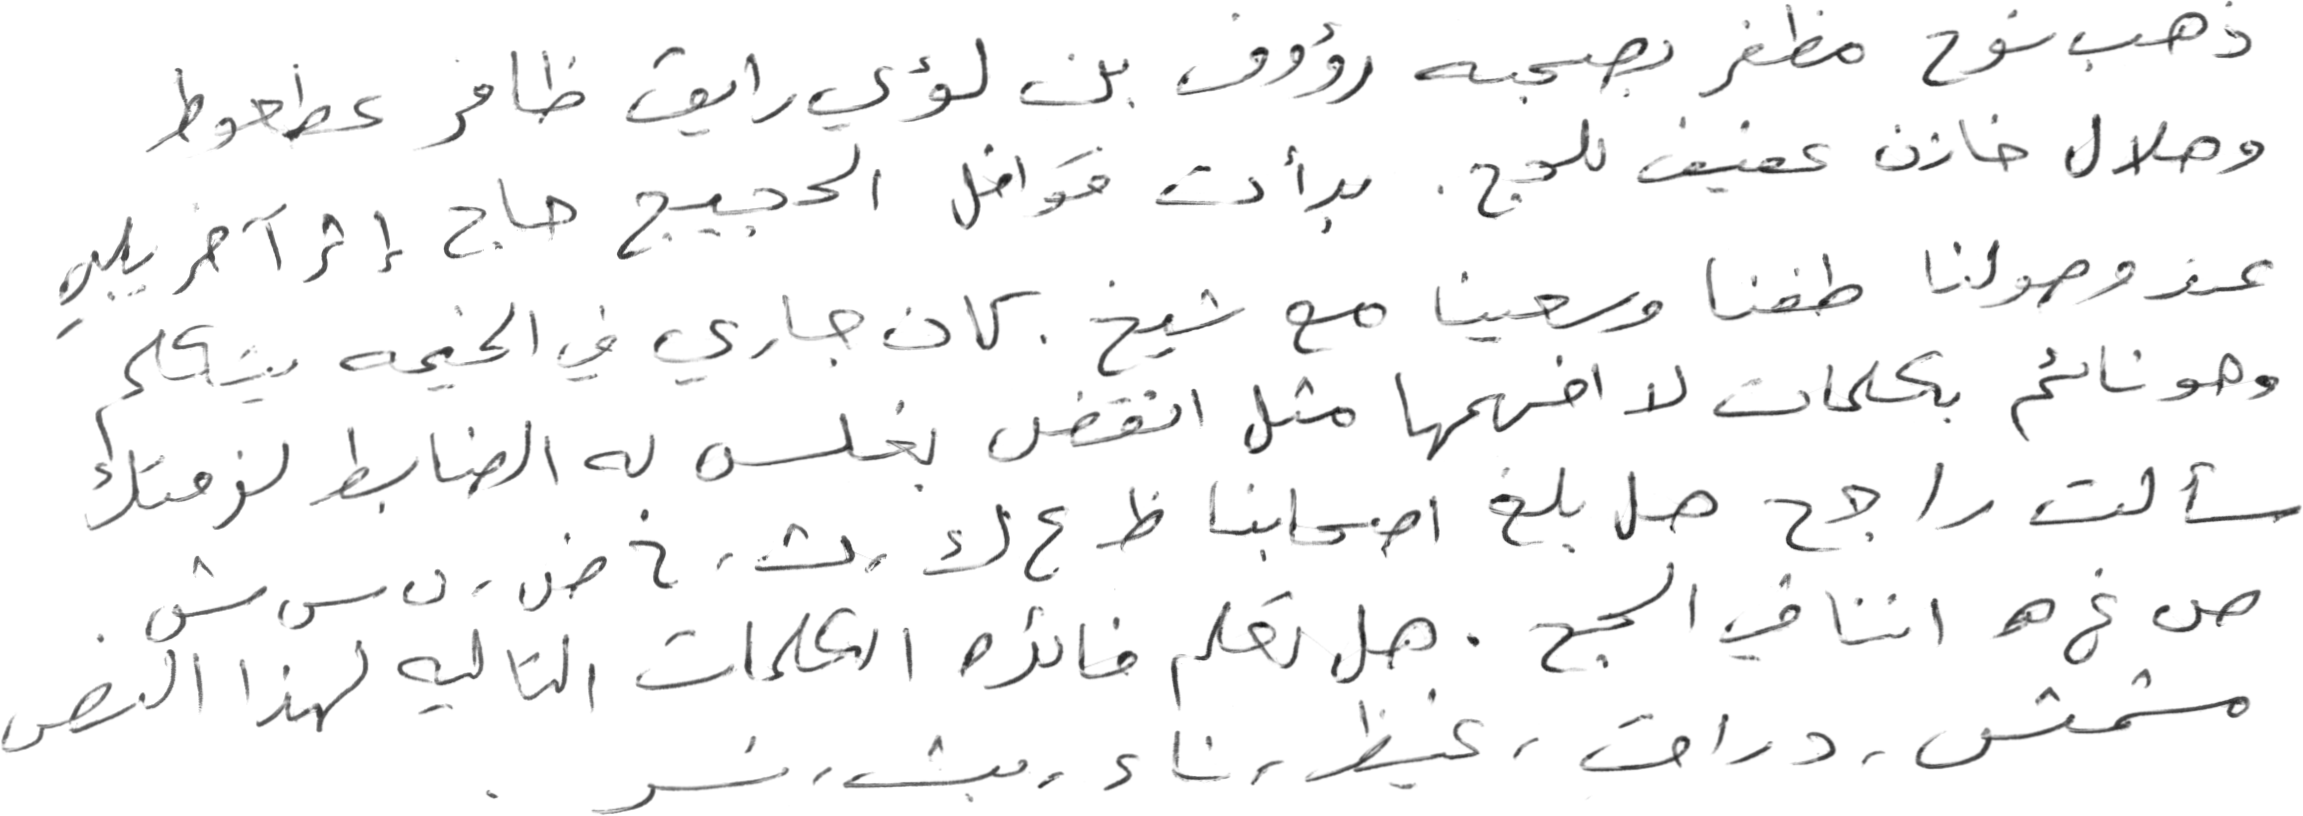 ذهب نوح مظفر بصحبه رؤوف بن لؤي رايق ظافر عطعوط
وهلال خازن عفيف للحج. بدأت قوافل الحجيج حاج إثر آخر يليهِ
عند وصولنا طفنا وسعينا مع شيخ. كان جاري في الخيمه يتكلم
وهو نائم بكلمات لا افهمها مثل انقض بغلس له الضابط لزمتك
سألت راجح هل بلغ اصحابنا ظ ع ك ، ث ، خ ض ، ن س ش
ص غ ه اننا في الحج . هل تعلم فائده الكلمات التاليه لهذا النص
مشمش ، دراق ، غيظ ، ناء ، بث ، نسر .